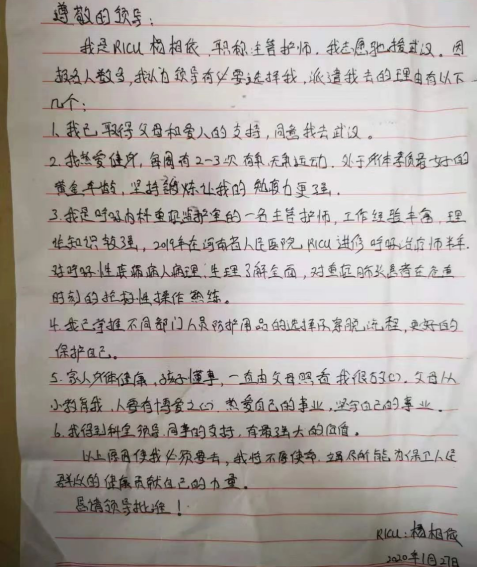 尊敬的领导:
我是RICU 杨相依,职称主管护师,我志愿驰援武汉。因
报名人数多,我认为领导有必要选择我,派遣我去的理由有以下
几个:
1.我已取得父母和爱人的支持,同意我去武汉。
2.我热爱健身,每周有2-3次有氧、无氧运动,处于身体素质最好的
黄金年龄,坚持锻炼让我的免疫力更强。
3.我是呼吸内科重症监护室的一名主管护师,工作经验丰富,理
论知识较强,2019年在河南省人民医院RICU进修呼吸治疗师半年,
对呼吸性疾病病人病理、生理了解全面,对重症肺炎患者在危重
时刻的护理性操作熟练。
4.我已掌握不同部门人员防护用品的选择及穿脱流程,更好的
保护自己。
5.家人身体健康,孩子懂事,一直由父母照看我很放心。父母从
小教育我,人要有博爱之心,热爱自己的事业,坚守自己的事业。
6.我得到科室领导、同事的支持,有着强大的后盾。
以上原因使我必须要去,我将不辱使命,竭尽所能为保卫人民
群众的健康贡献自己的力量。
恳请领导批准!
RICU:杨相依
2020年1月27日